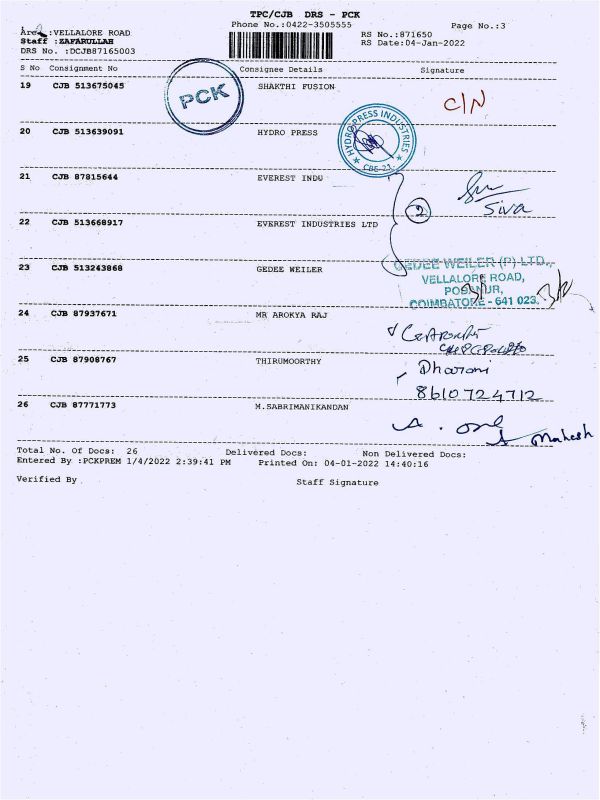 TPC/CJB DRS - PCK
Phone No.:0422-3505555
Page No.:3
Area :VELLALORE ROAD
RS No.:871650
Staff :ZAFARULLAH
RS Date:04-Jan-2022
DRS No. :DCJB87165003
S No Consignment No Consignee Details Signature
19 CJB 513675045 SHAKTHI FUSION C/N
PCK
20 CJB 513639091 HYDRO PRESS
HYDRO PRESS INDUSTRIES
21 CJB 87815644 EVEREST INDU
2
Siva
22 CJB 513668917 EVEREST INDUSTRIES LTD
23 CJB 513243868 GEDEE WEILER
GEDEE WEILER (P) LTD.,
VELLALORE ROAD,
PODANUR,
COIMBATORE - 641 023.
24 CJB 87937671 MR AROKYA RAJ
25 CJB 87908767 THIRUMOORTHY
Dharani
8610724712
26 CJB 87771773 M.SABRIMANIKANDAN
Mahesh
Total No. Of Docs: 26 Delivered Docs: Non Delivered Docs:
Entered By :PCKPREM 1/4/2022 2:39:41 PM Printed On: 04-01-2022 14:40:16
Verified By Staff Signature